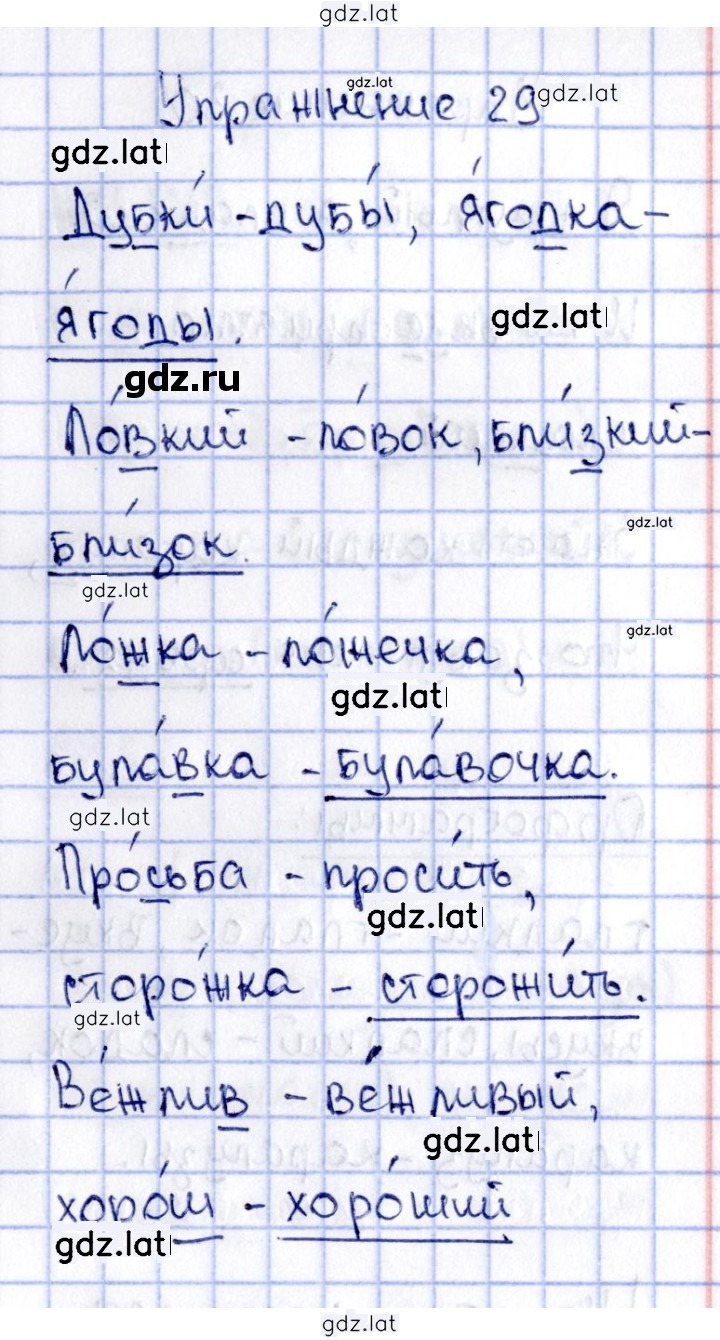 gdz.lat
Упражнение 29
gdz.lat
gdz.lat
gdz.lat
Дубки́ - дубы́, я́годка -
я́годы.
gdz.lat
gdz.ru
Ло́вкий - ло́вок, бли́зкий -
gdz.lat
бли́зок.
gdz.lat
gdz.lat
Ло́жка - ло́жечка,
gdz.lat
була́вка - була́вочка.
gdz.lat
Про́сьба - проси́ть,
gdz.lat
сторо́жка - сторожи́ть.
gdz.lat
Ве́жлив - ве́жливый,
gdz.lat
хоро́ш - хоро́ший
gdz.lat
gdz.lat